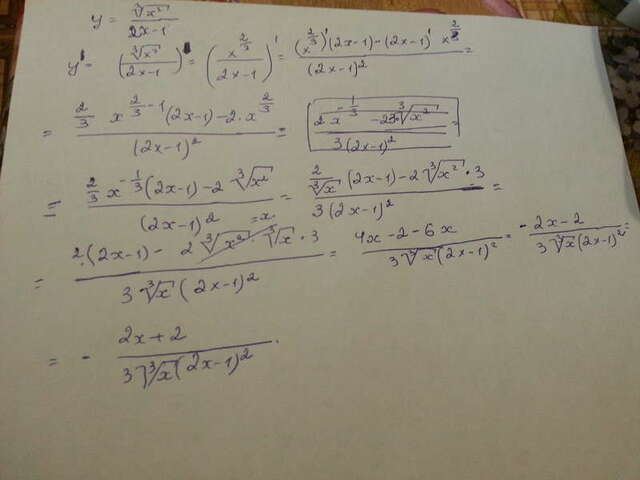 y = ∛x² / (2x-1)
y' = (∛x² / (2x-1))' = (x^(2/3) / (2x-1))' = ((x^(2/3))' (2x-1) - (2x-1)' x^(2/3)) / (2x-1)² =
= (2/3 x^(2/3 - 1) (2x-1) - 2·x^(2/3)) / (2x-1)² =
= (2/3 x^(-1/3) (2x-1) - 2 ∛x²) / (2x-1)² = (2/∛x (2x-1) - 2 ∛x² · 3) / 3(2x-1)² =
= (2·(2x-1) - 2 ∛x² · ∛x · 3) / 3 ∛x (2x-1)² = (4x - 2 - 6x) / 3∛x (2x-1)² = - (2x-2) / 3∛x (2x-1)² =
= - (2x+2) / 3∛x (2x-1)².